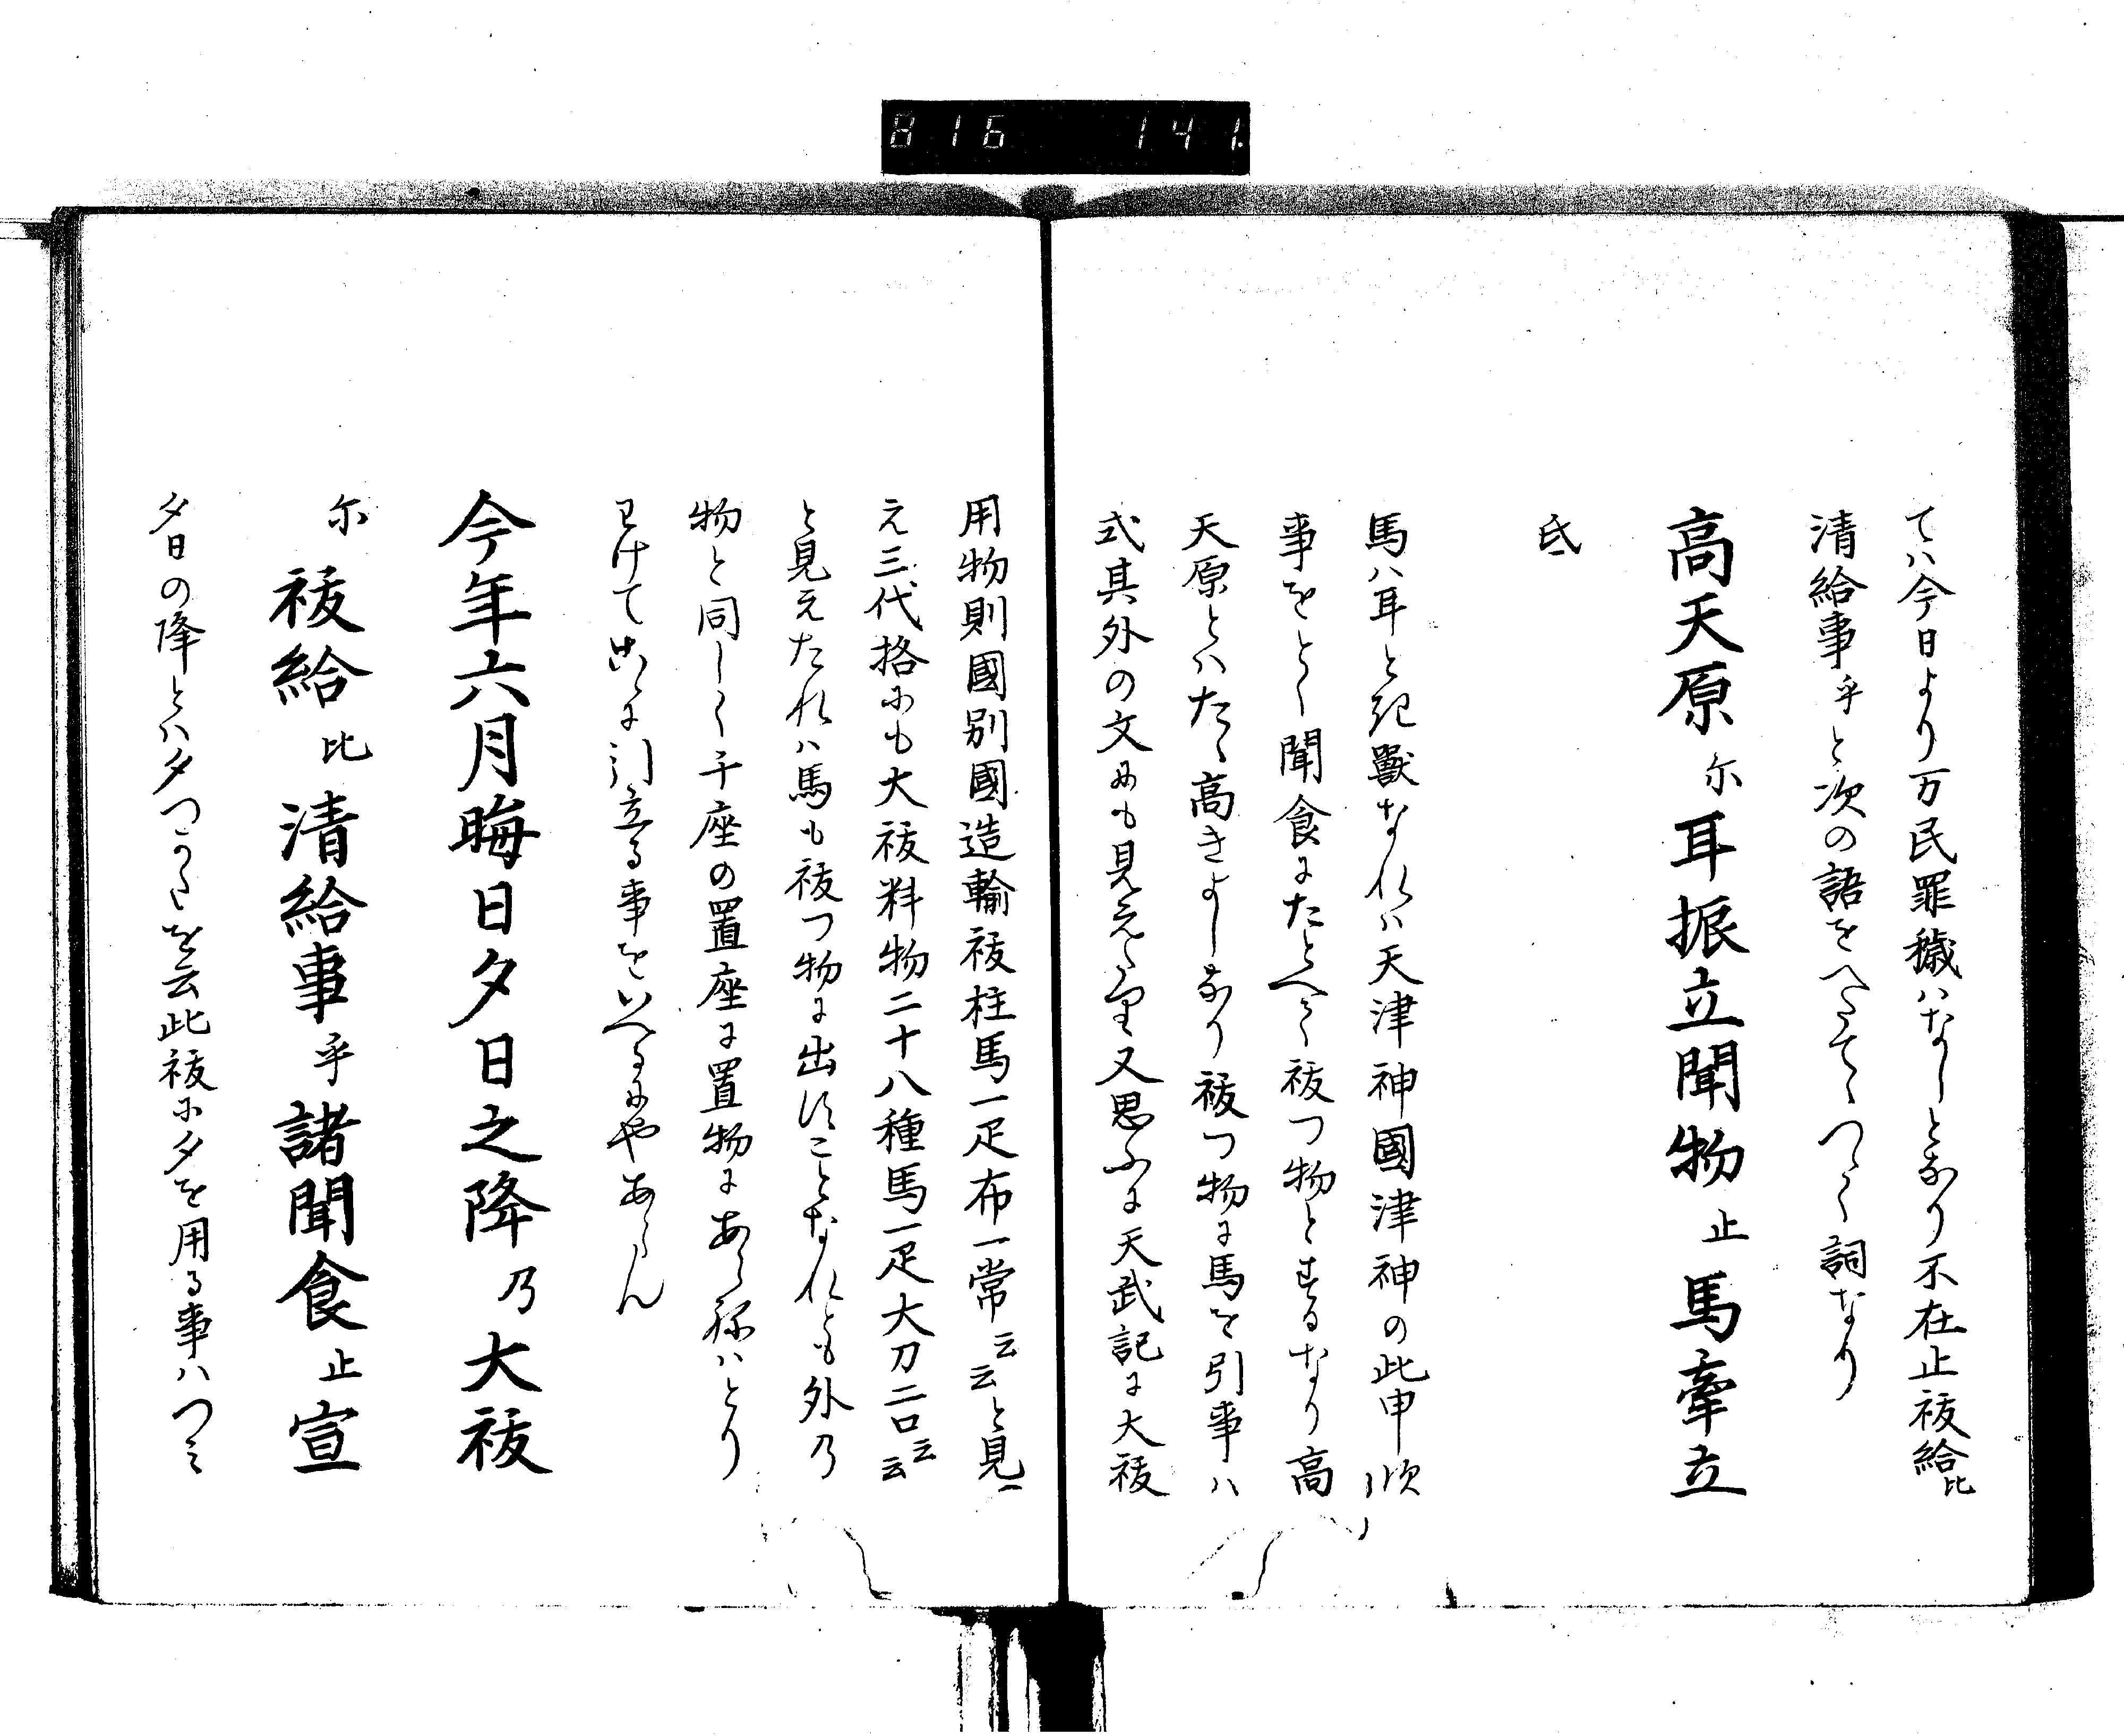 816 141.
てハ今日より万民罪穢ハなしとなり不在止祓給比
清給事乎と次の語をへたてゝつゝく詞なり
高天原尓耳振立聞物止馬牽立
氐
馬ハ耳とき獣なれハ天津神國津神の此申順
事をとく聞食にたとへて祓つ物とするなり高
天原とハたゝ高きよしなり祓つ物に馬を引事ハ
式其外の文にも見えたり又思ふに天武記に大祓
用物則國別國造輸祓柱馬一疋布一常云云と見
え三代格にも大祓料物二十八種馬一疋大刀二口云云
と見えたれハ馬も祓つ物に出すことなれとも外乃
物と同しく千座の置座に置物にあらねハとり
わけてこゝに引立る事をいへるにやあらん
今年六月晦日夕日之降乃大祓
尓祓給比清給事乎諸聞食止宣
夕日の降とハ夕つかたを云此祓に夕を用る事ハつミ